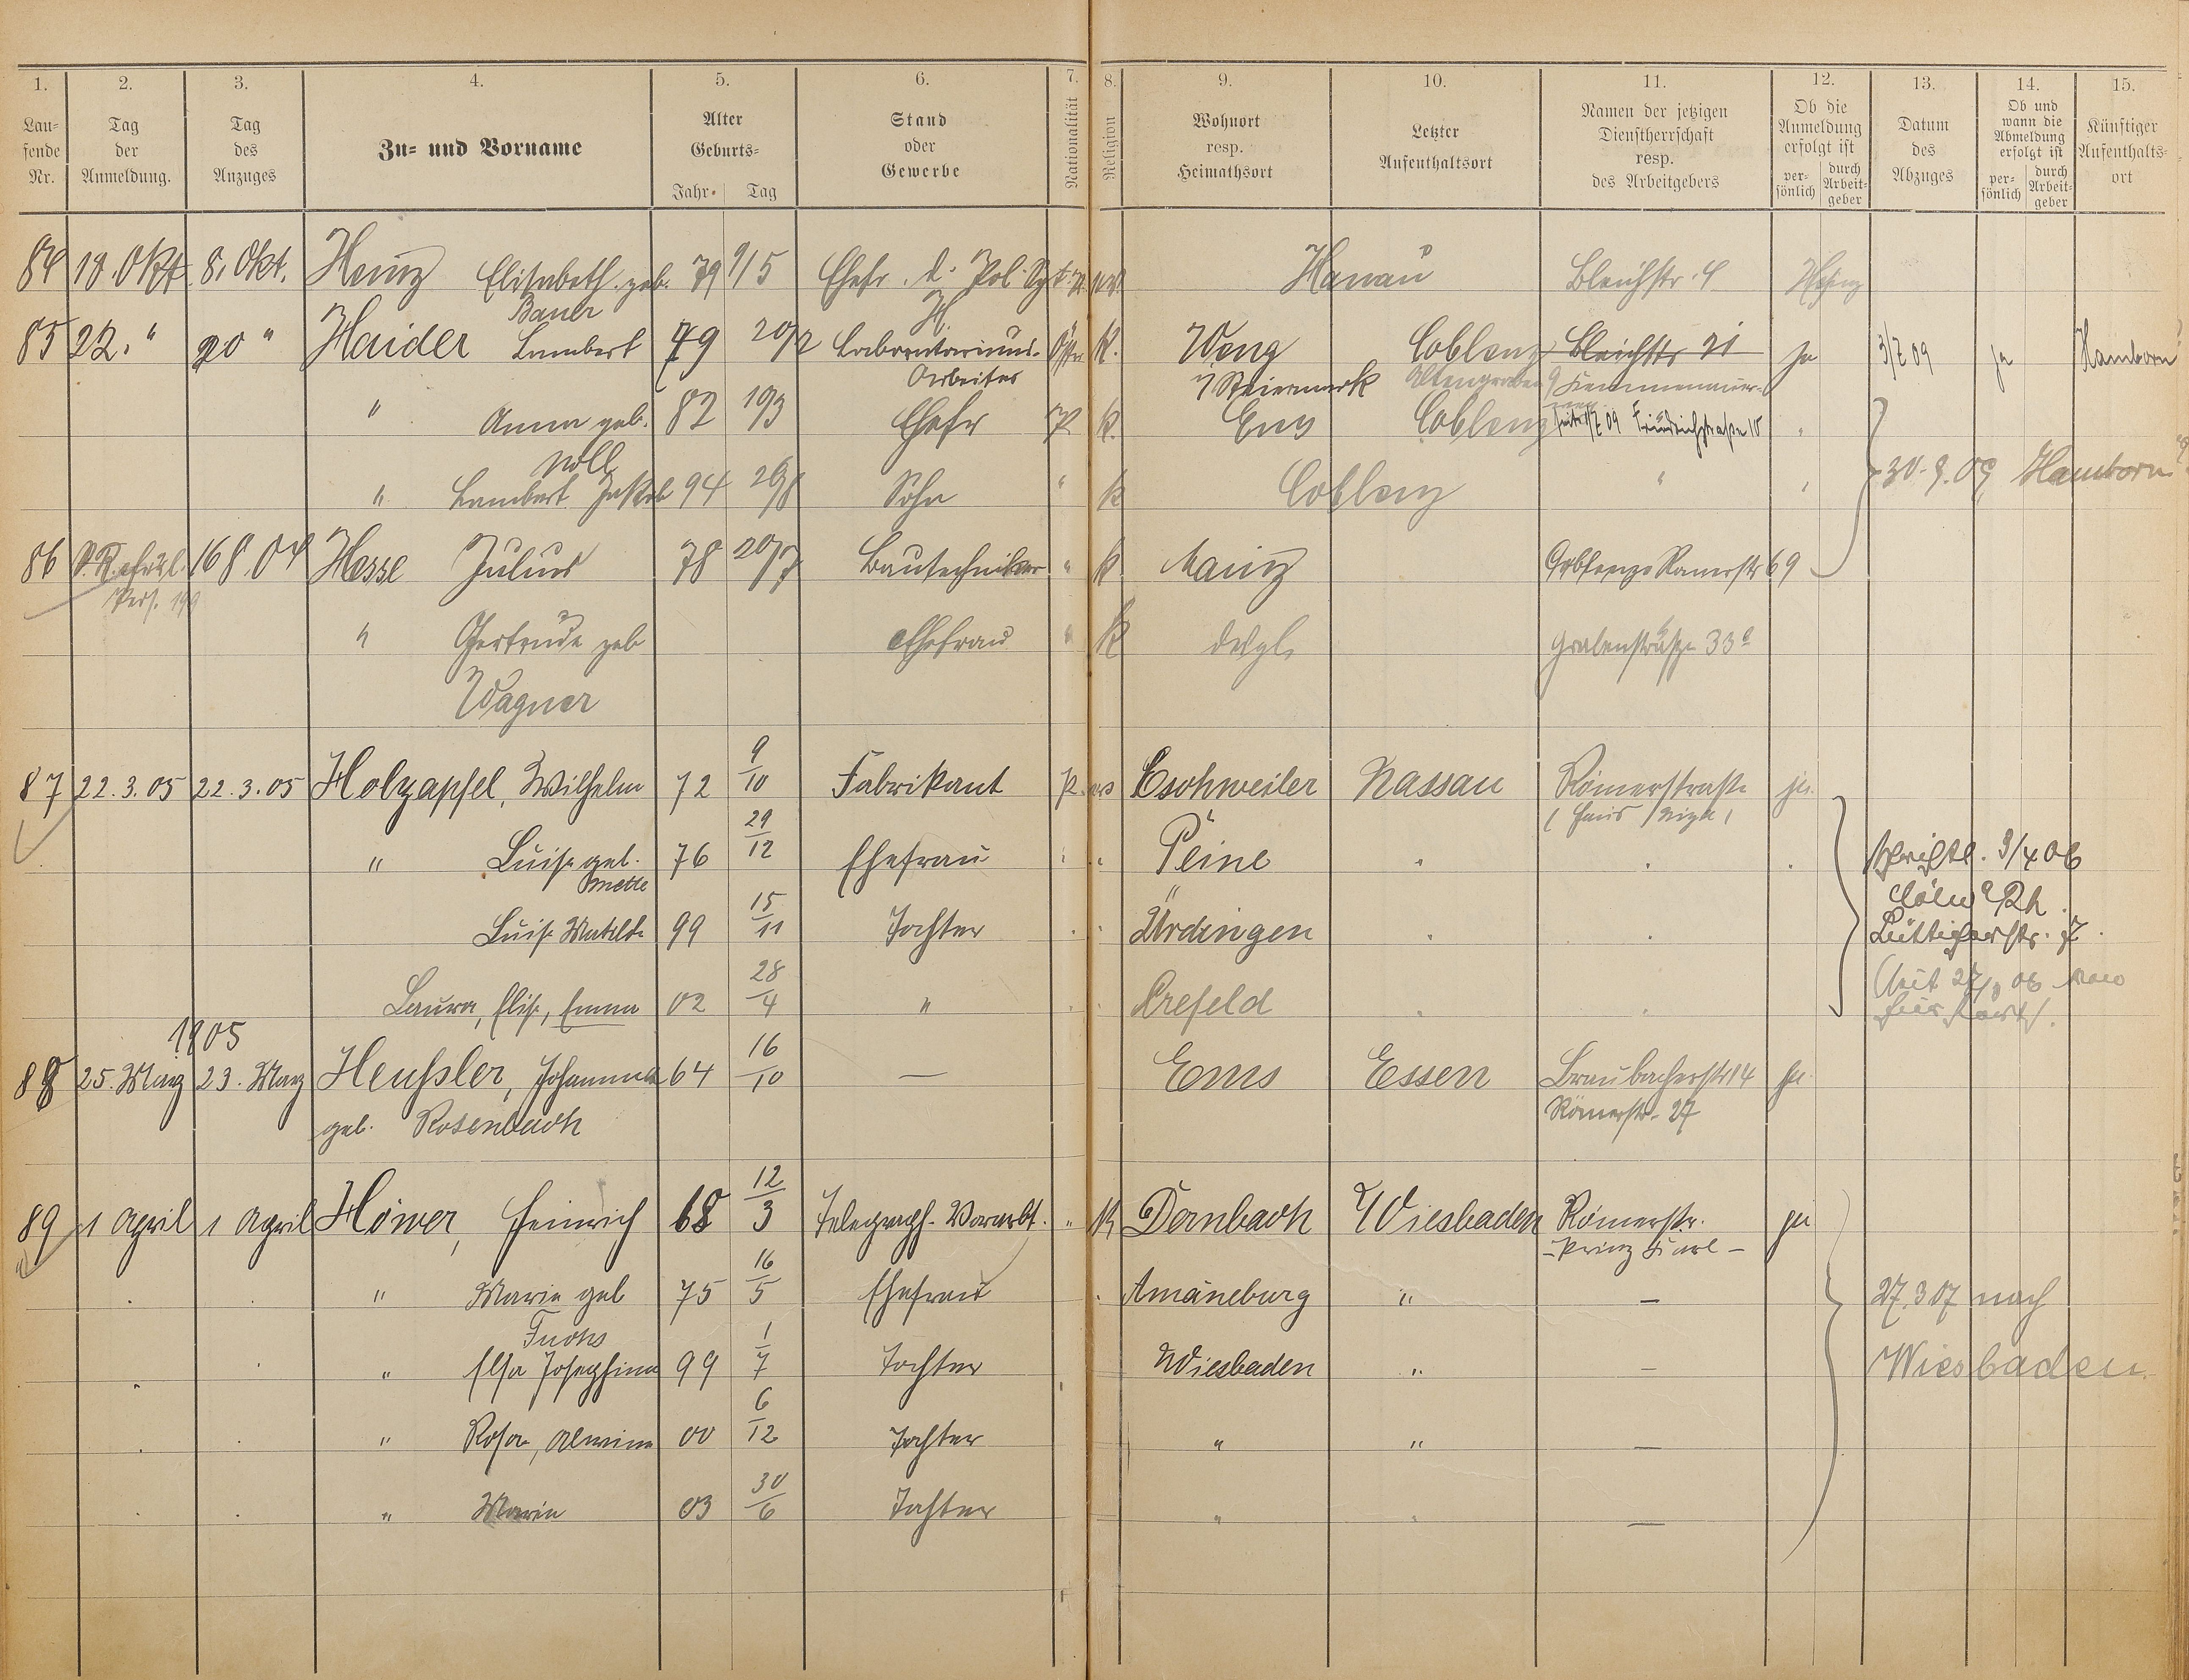 1. 2. 3. 4. 5. 6. 7. 8. 9. 10. 11. 12. 13. 14. 15.
Lau=fende Nr. Tag der Anmeldung. Tag des Anzuges Zu= und Vorname Alter Geburts= Jahr= Tag Stand oder Gewerbe Nationalität Religion Wohnort resp. Heimathsort Letzter Aufenthaltsort Namen der jetzigen Dienstherrschaft resp. des Arbeitgebers Ob die Anmeldung erfolgt ist persönlich durch Arbeit=geber Datum des Abzuges Ob und wann die Abmeldung erfolgt ist persönlich durch Arbeit=geber Künftiger Aufenthalts=ort
84 18. Okt. 8. Okt. Heinz Elisabeth. geb. 79 9/5 Ehefr. d. Pol. Sgt. Hanau Bleichstr. 4
Bauer H.
85 22. " 20 " Haider Lambert 79 20/2 Laboratoriums- Östr. K. Weng Coblenz Bleichstr 21 ja 3/7 09 ja Hamborn
Arbeiter i/ Steiermark Altengraben 9 Kemmenauer-
" Anna geb. 82 19/3 Ehefr P. K. Ems Coblenz 7 09 Friedrichstraße 10 "
Noll
" Lambert Jakob 94 26/8 Sohn " K Coblenz " " 30.9.09 Hamborn
86 168.04 Hesse Julius 78 20/7 Bautechniker " K Mainz Coblenze Römerstr 69
" Gertrude geb Ehefrau " K desgl. Grabenstraße 33
Wagner
87 22.3.05 22.3.05 Holzapfel, Wilhelm 72 9/10 Fabrikant P. evs Eschweiler Nassau Römerstraße ja.
" Luise geb. 76 29/12 Ehefrau " " Peine " " " 3/4 06
Mette Cöln a Rh.
Luise Matilde 99 15/11 Tochter " " Ürdingen " " Lütticherstr. 7.
Laura, Elise, Emma 02 28/4 " " " Crefeld " "
1905
88 25. März 23. März Heußler, Johanna 64 16/10 — Ems Essen Braubacherstr 14 ja.
geb. Rosenbach Römerstr. 27
89 1 April 1 April Höwer, Heinrich 68 12/3 Telegraph. Vorarbt. " K Dernbach Wiesbaden Römerstr. ja
- Prinz Karl -
" Marie geb 75 16/5 Ehefrau " Amöneburg " — 27.3 07 nach
Fuchs
" Elsa Josephina 99 1/7 Tochter Wiesbaden " — Wiesbaden.
" Rosa, Alwina 00 6/12 Tochter " " —
" Maria 03 30/6 Tochter " " —